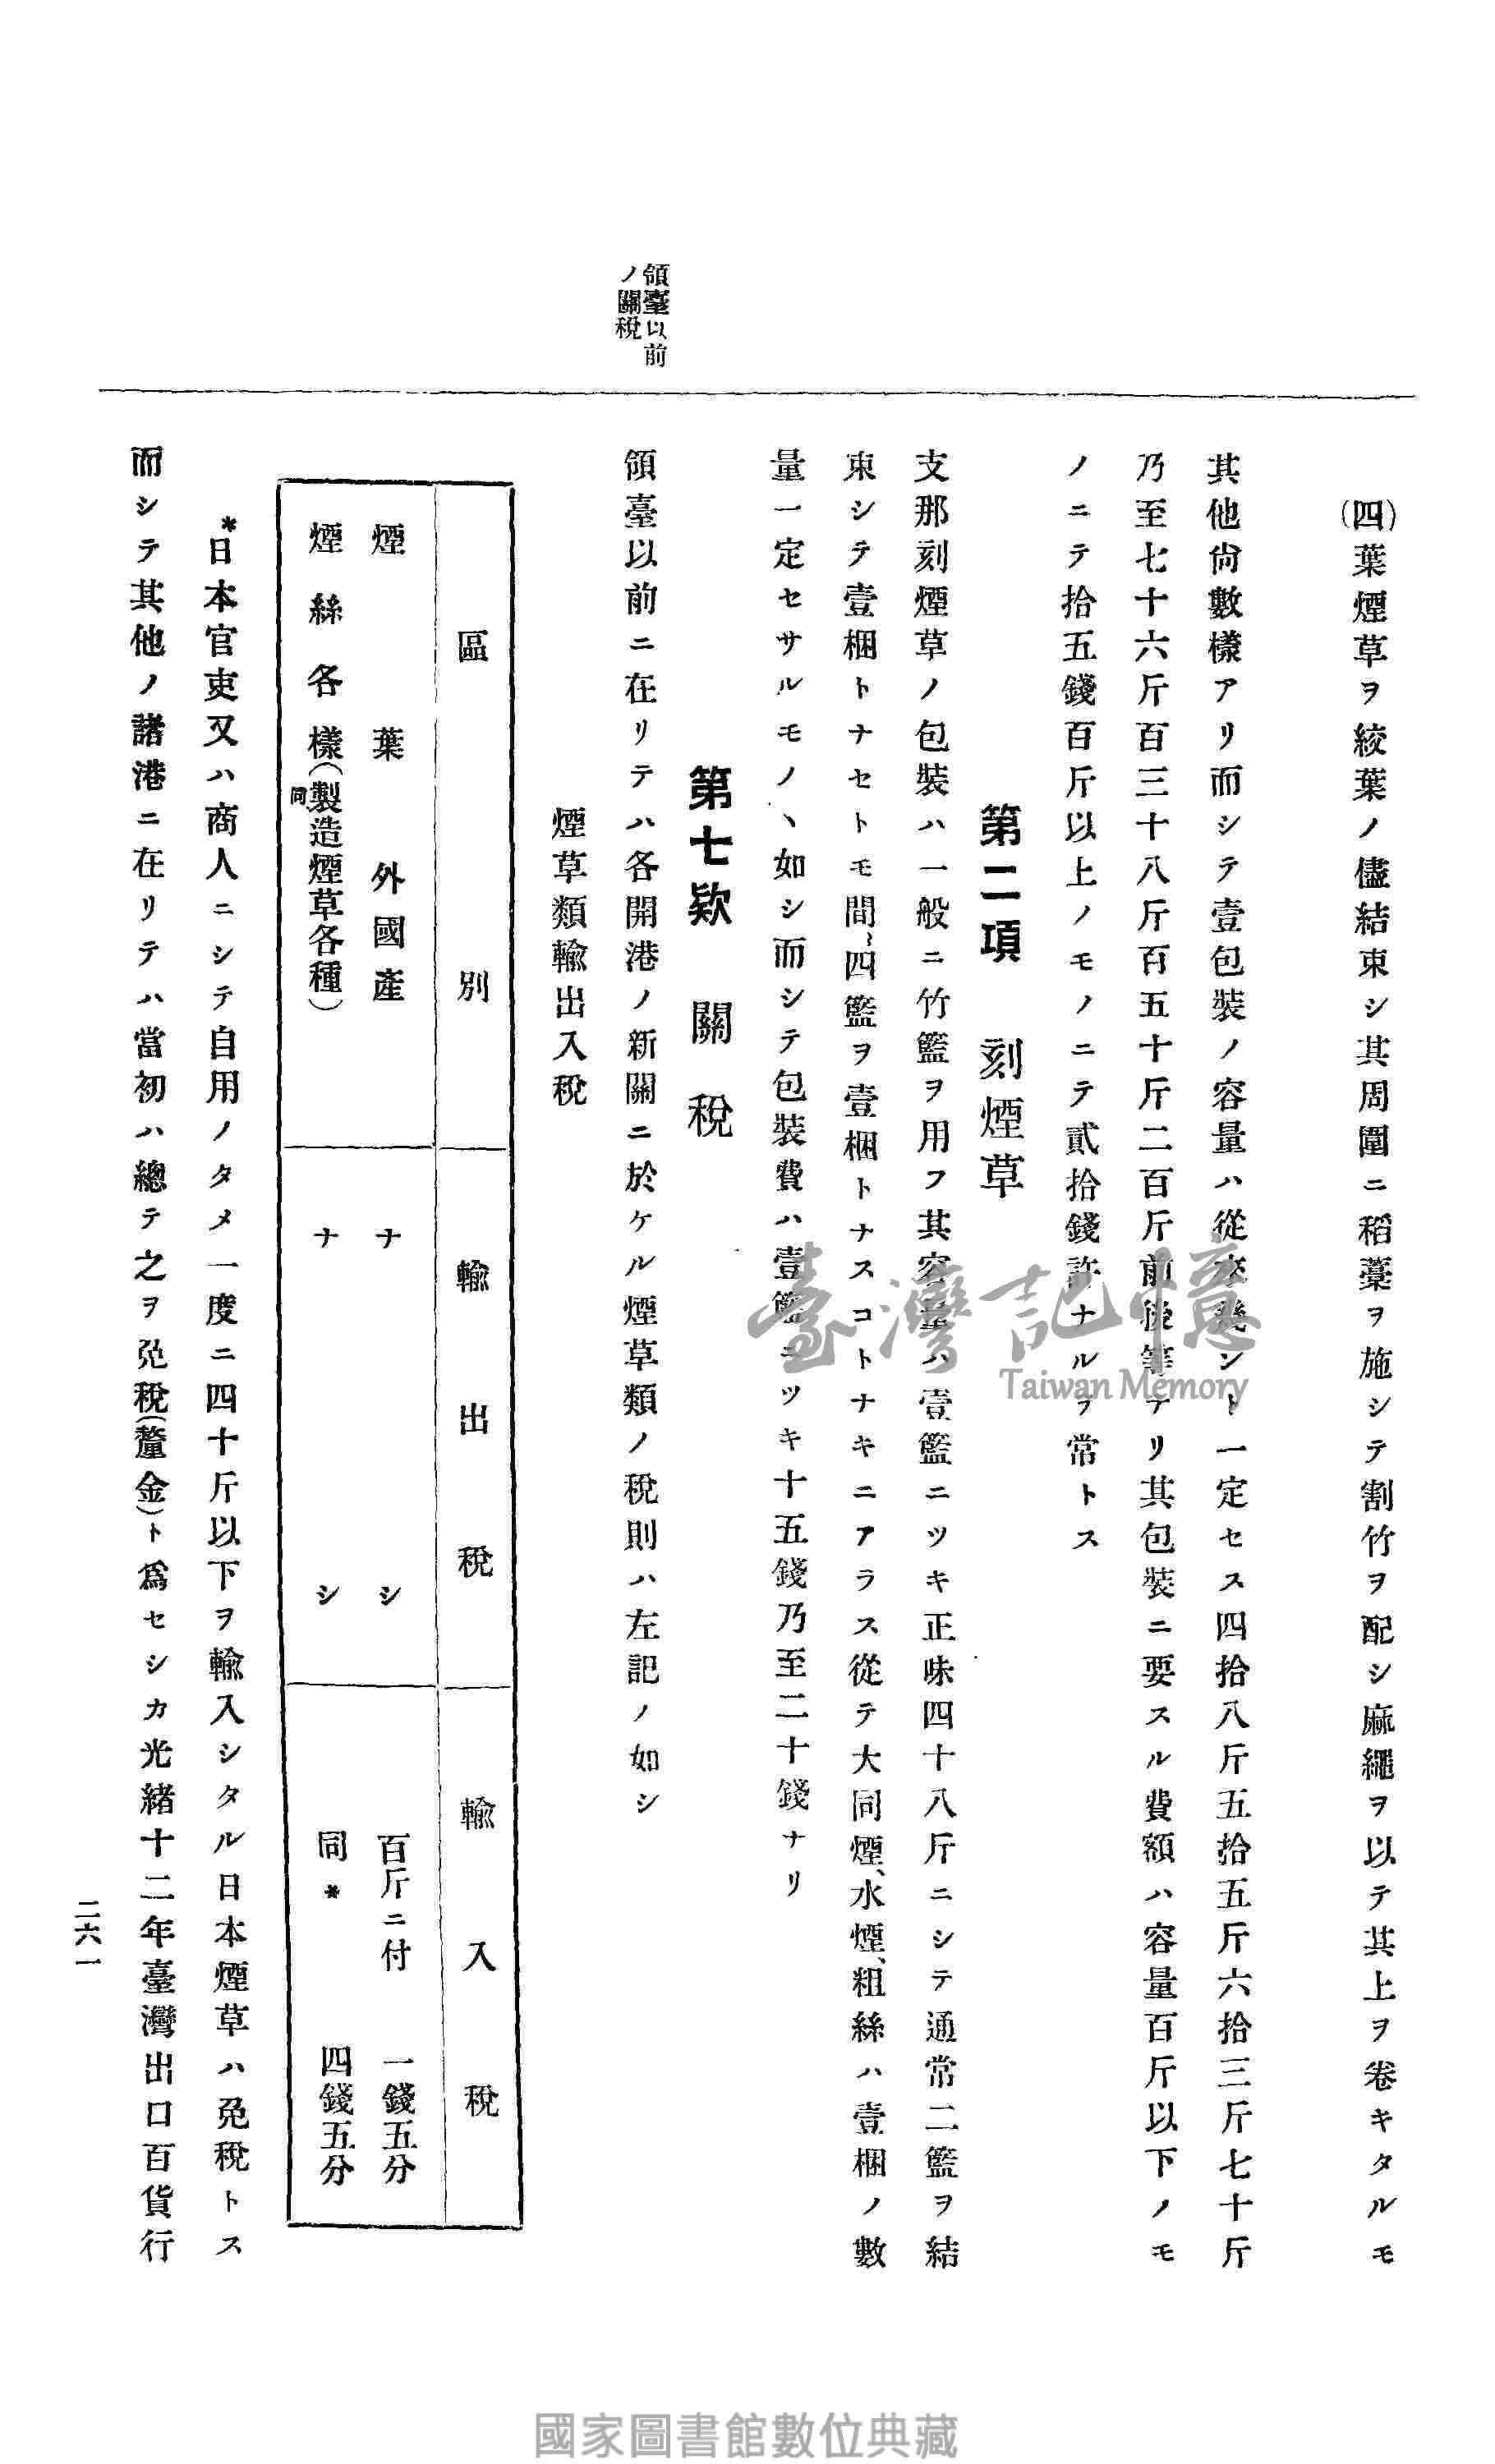 領臺以前
ノ關稅
(四)葉煙草ヲ絞葉ノ儘結束シ其周圍ニ稻藁ヲ施シテ割竹ヲ配シ麻繩ヲ以テ其上ヲ卷キタルモ
其他尙數樣アリ而シテ壹包裝ノ容量ハ從來幾ント一定セス四拾八斤五拾五斤六拾三斤七十斤
乃至七十六斤百三十八斤百五十斤二百斤前後等ナリ其包裝ニ要スル費額ハ容量百斤以下ノモ
ノニテ拾五錢百斤以上ノモノニテ貳拾錢許ナルヲ常トス
第二項 刻煙草
支那刻煙草ノ包裝ハ一般ニ竹籃ヲ用フ其容量ハ壹籃ニツキ正味四十八斤ニシテ通常二籃ヲ結
束シテ壹梱トナセトモ間〻四籃ヲ壹梱トナスコトナキニアラス從テ大同煙、水煙、粗絲ハ壹梱ノ數
量一定セサルモノヽ如シ而シテ包裝費ハ壹籃ニツキ十五錢乃至二十錢ナリ
第七欵 關稅
領臺以前ニ在リテハ各開港ノ新關ニ於ケル煙草類ノ稅則ハ左記ノ如シ
煙草類輸出入稅
區別 輸出稅 輸入稅
煙葉 外國產 ナシ 百斤ニ付 一錢五分
煙絲各樣(製造煙草各種) 同 ナシ 同* 四錢五分
*日本官吏又ハ商人ニシテ自用ノタメ一度ニ四十斤以下ヲ輸入シタル日本煙草ハ免稅トス
而シテ其他ノ諸港ニ在リテハ當初ハ總テ之ヲ免稅(釐金)ト爲セシカ光緖十二年臺灣出口百貨行
二六一
臺灣記憶
Taiwan Memory
國家圖書館數位典藏